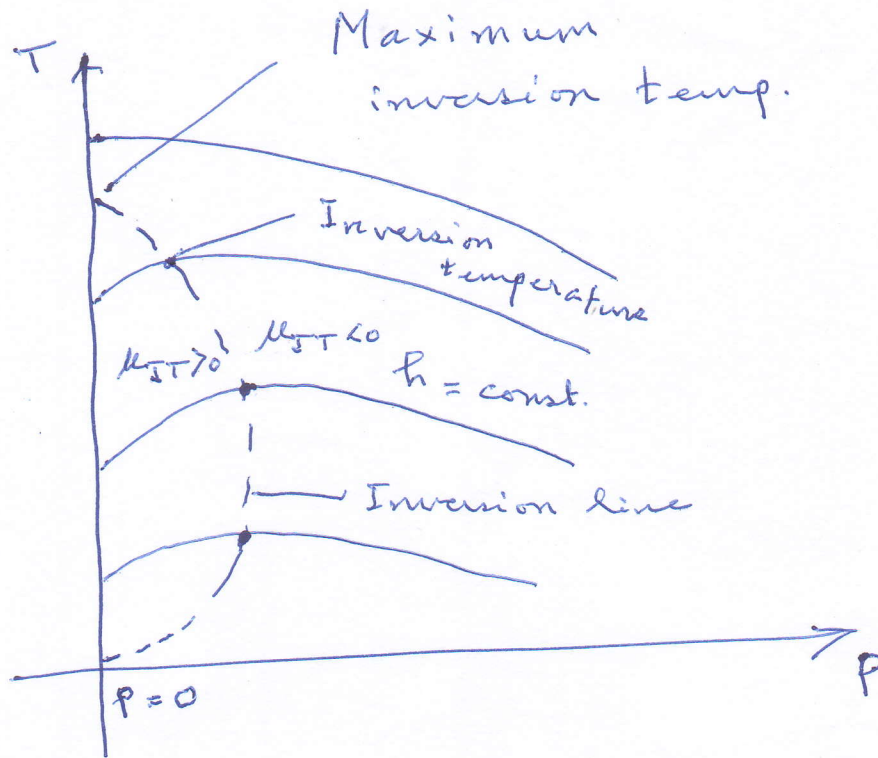 Maximum
inversion temp.
T
Inversion
temperature
μJT>0 μJT<0
h = const.
Inversion line
P
P = 0